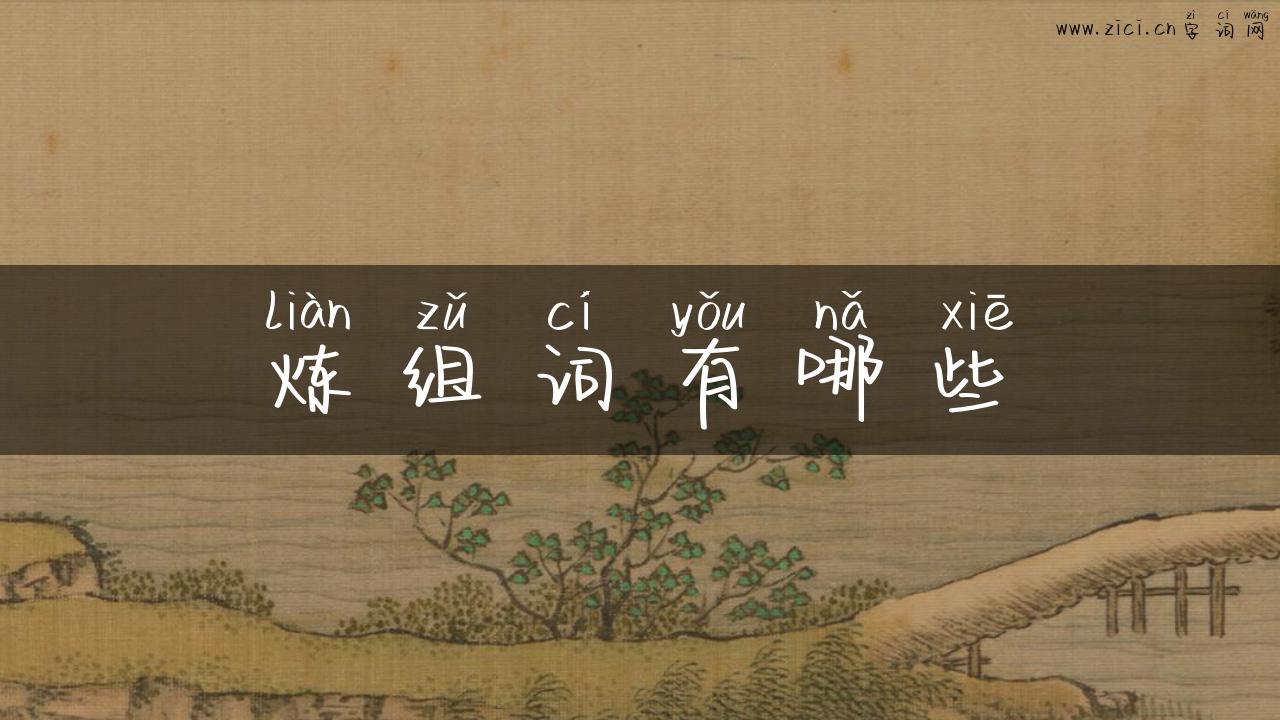 zì cí wǎng
www.zici.cn字词网
liàn zǔ cí yǒu nǎ xiē
炼组词有哪些